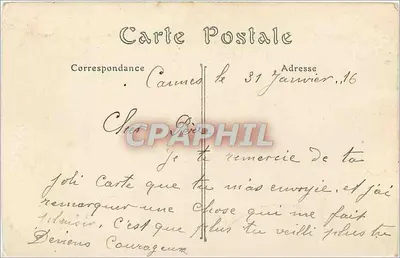 Carte Postale
Correspondance
Adresse
Cannes le 31 Janvier 16
Cher Père
CPAPHIL
Je te remercie de ta
joli Carte que tu m'as envoyie, et j'ai
remarquer une Chose qui me fait
plaisir, c'est que plus tu veilli plus tu
Deviens Courageux